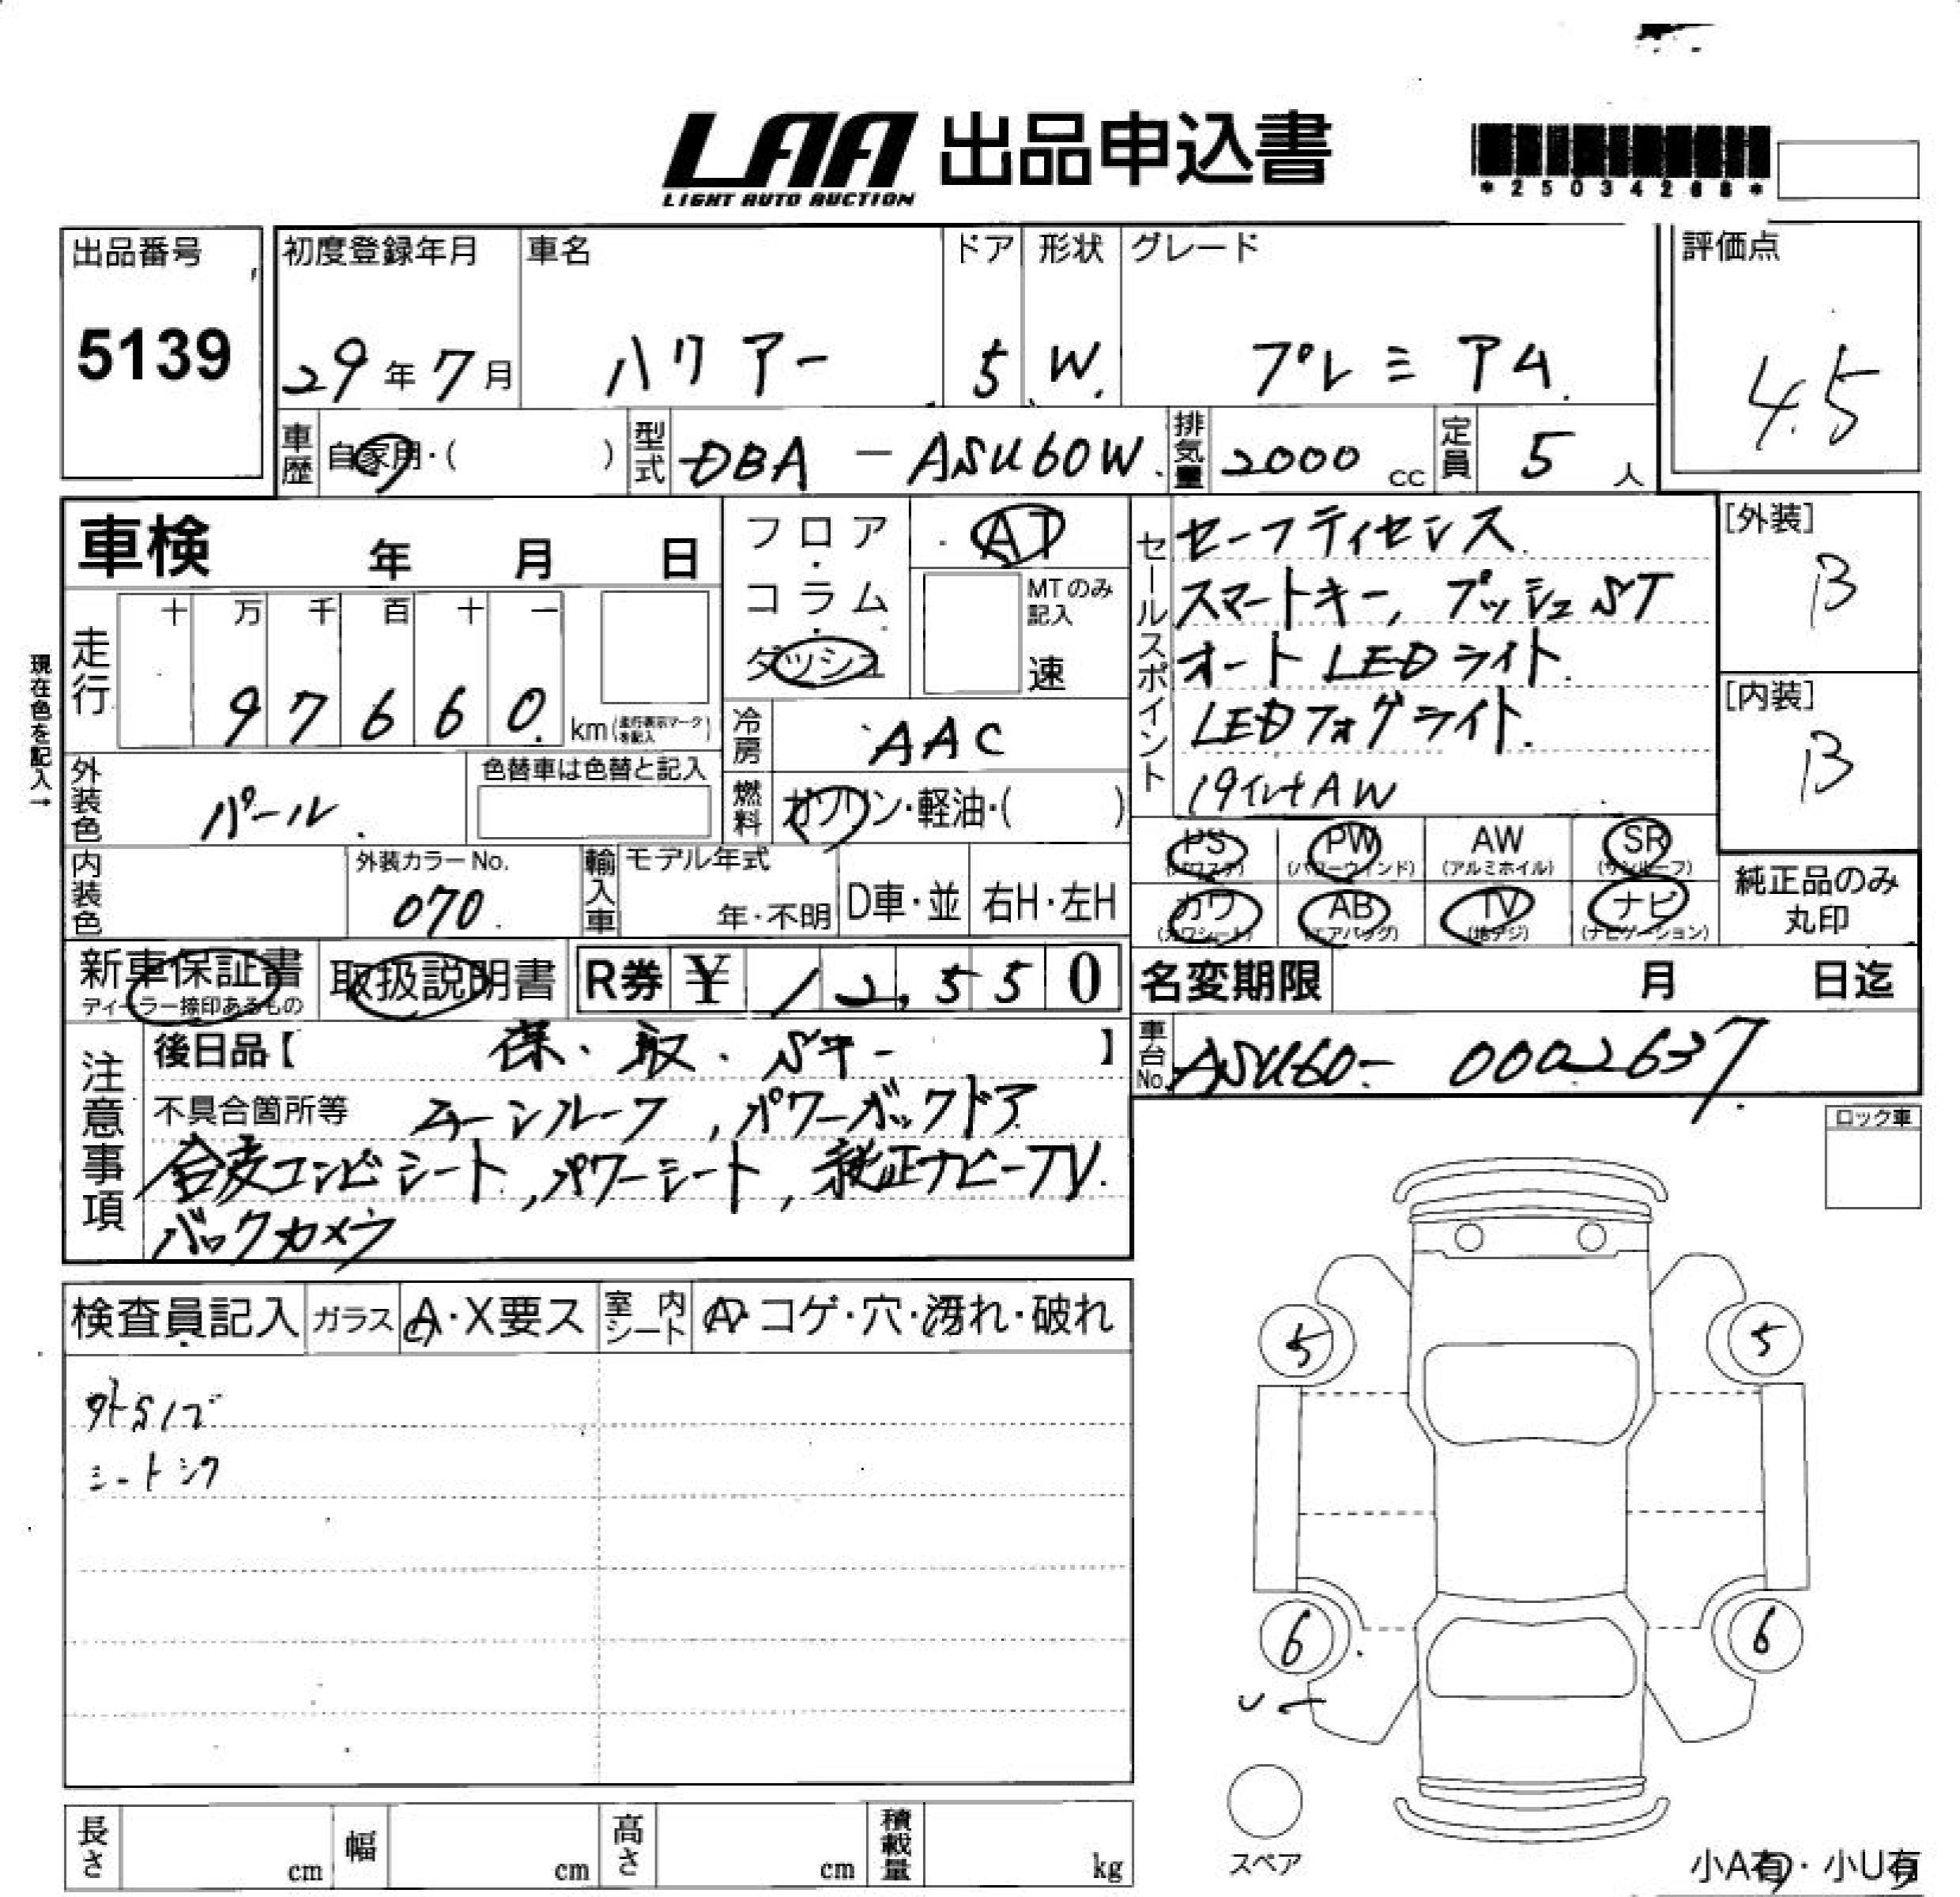 LAA 出品申込書
LIGHT AUTO AUCTION
*25034268*
出品番号
5139
初度登録年月
29年7月
車名
ハリアー
ドア
5
形状
W.
グレード
プレミアム.
評価点
4.5
車歴
自家用・( )
型式
DBA-ASU60W.
排気量
2000 cc
定員
5 人
車検 年 月 日
フロア・コラム・ダッシュ
AT
MTのみ記入
速
セールスポイント
セーフティセンス
スマートキー, プッシュST
オートLEDライト.
LEDフォグライト.
19インチAW
[外装]
B
[内装]
B
現在色を記入→
走行
十 万 千 百 十 一
97660 km(走行表示マークを記入)
冷房
AAC
燃料
ガソリン・軽油・( )
外装色
パール.
色替車は色替と記入
内装色
外装カラーNo.
070.
輸入車
モデル年式
年・不明
D車・並
右H・左H
PS (パワステ)
PW (パワーウィンド)
AW (アルミホイル)
SR (サンルーフ)
カワ (カワシート)
AB (エアバッグ)
TV (地デジ)
ナビ (ナビゲーション)
純正品のみ丸印
新車保証書
ディーラー捺印あるもの
取扱説明書
R券 ¥ 12,550
名変期限 月 日迄
車台No.
ASU60-0002637
注意事項
後日品【 保・取・Sキー 】
不具合箇所等 ムーンルーフ, パワーバックドア
合皮コンビシート, パワーシート, 純正ナビーTV.
バックカメラ
ロック車
検査員記入
ガラス
A・X要ス
室内シート
A・コゲ・穴・汚れ・破れ
シートシワ
5
5
6
6
スペア
小A有・小U有
長さ cm
幅 cm
高さ cm
積載量 kg